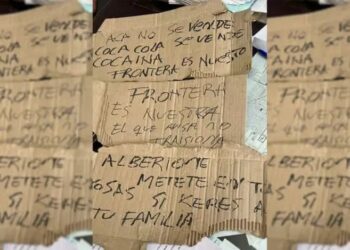 ACA NO SE VENDE
COCA COLA SE VENDE
COCAINA ES NUESTO
FRONTERA
FRONTERA
ES
NUESTRA
EL QUE PASA NO
ALBERIONTE
METETE EN
COSAS
SI KERES
A TU FAMILIA